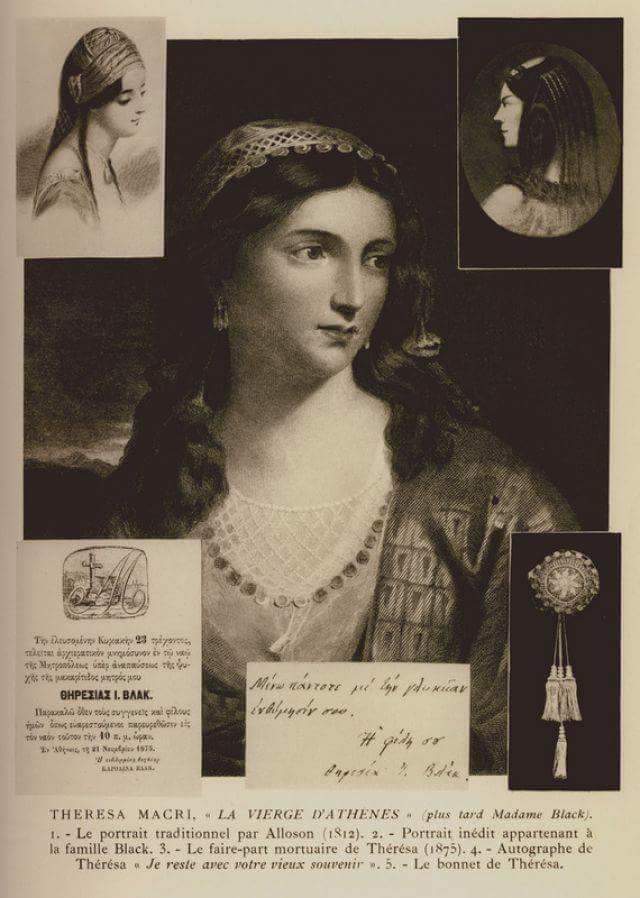 M
Τὴν ἐλευσομένην Κυριακὴν 23 τρέχοντος,
τελεῖται ἀρχιερατικὸν μνημόσυνον ἐν τῷ ναῷ
τῆς Μητροπόλεως ὑπὲρ ἀναπαύσεως τῆς ψυ-
χῆς τῆς μακαρίτιδος μητρός μου
ΘΗΡΕΣΙΑΣ Ι. ΒΛΑΚ.
Παρακαλῶ ὅθεν τοὺς συγγενεῖς καὶ φίλους
ἡμῶν ὅπως εὐαρεστούμενοι παρευρεθῶσιν εἰς
τὸν ναὸν τοῦτον τὴν 10 π. μ. ὥραν.
Ἐν Ἀθήναις, τῇ 21 Νοεμβρίου 1875.
Ἡ τεθλιμμένη θυγάτηρ
ΚΑΡΟΛΙΝΑ ΒΛΑΚ.
Μένω πάντοτε μὲ τὴν γλυκεῖαν
ἐνθύμησίν σου.
Ἡ φίλη σου
Θηρεσία Ι. Βλάκ.
THERESA MACRI, « LA VIERGE D'ATHÈNES » (plus tard Madame Black).
1. - Le portrait traditionnel par Alloson (1812). 2. - Portrait inédit appartenant à
la famille Black. 3. - Le faire-part mortuaire de Thérésa (1875). 4. - Autographe de
Thérésa « Je reste avec votre vieux souvenir ». 5. - Le bonnet de Thérésa.